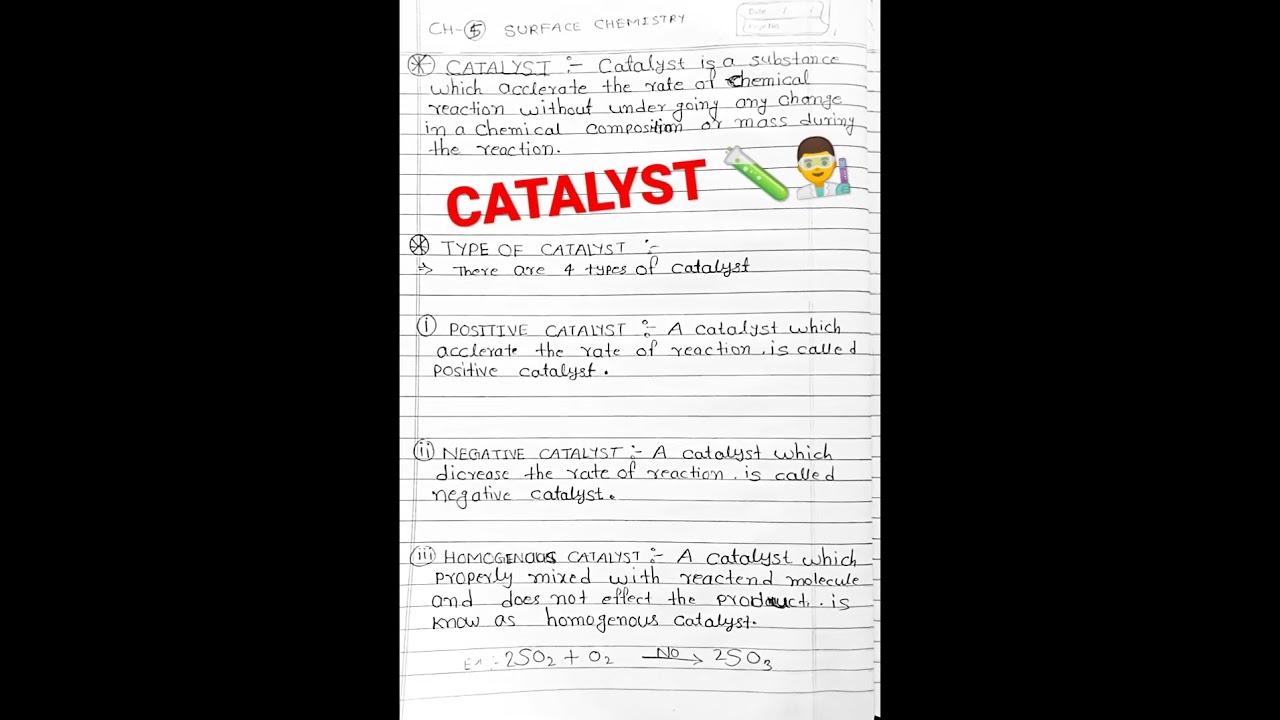 CH-5 SURFACE CHEMISTRY
Date / /
Page No
CATALYST :- Catalyst is a substance
which acclerate the rate of chemical
reaction without under going any change
in a chemical composition or mass during
the reaction.
CATALYST
TYPE OF CATALYST :-
=> There are 4 types of catalyst
i POSITIVE CATALYST :- A catalyst which
acclerate the rate of reaction. is called
positive catalyst.
ii NEGATIVE CATALYST :- A catalyst which
dicrease the rate of reaction. is called
negative catalyst.
iii HOMOGENOUS CATALYST :- A catalyst which
properly mixed with reactend molecule
and does not effect the product. is
know as homogenous catalyst.
Ex:- 2SO2 + O2 NO → 2SO3